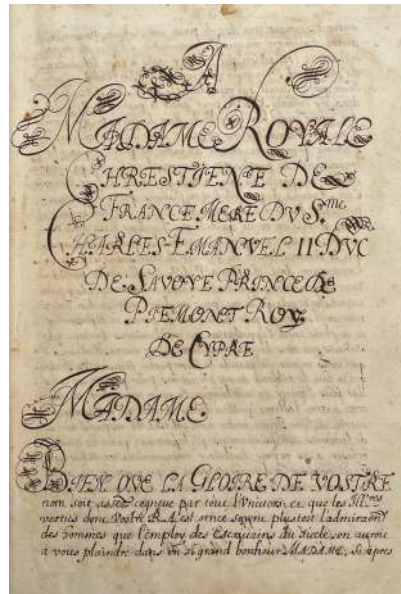 A
MADAME ROYALE
CHRESTIENE DE
FRANCE MERE DV S.me
CHARLES EMANVEL II DVC
DE SAVOYE PRINCE DE
PIEMONT ROY
DE CYPRE
MADAME
BIEN QVE LA GLOIRE DE VOSTRE
nom soit assez cogneue par tout l'Univers, et que les Ill.res
vertus dont Vostre R.A. est ornée soyent plustost l'admiraon
des hommes que l'employ des Escrivains du siecle, on auroit
a vous plaindre dans un si grand bonheur MADAME, si apres